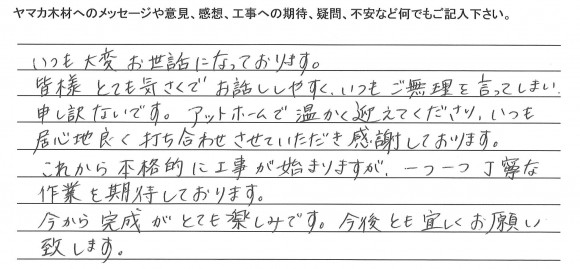 ヤマカ木材へのメッセージや意見、感想、工事への期待、疑問、不安など何でもご記入下さい。
いつも大変お世話になっております。
皆様とても気さくでお話ししやすく、いつもご無理を言ってしまい
申し訳ないです。アットホームで温かく迎えてくださり、いつも
居心地良く打ち合わせさせていただき感謝しております。
これから本格的に工事が始まりますが、一つ一つ丁寧な
作業を期待しております。
今から完成がとても楽しみです。今後とも宜しくお願い
致します。